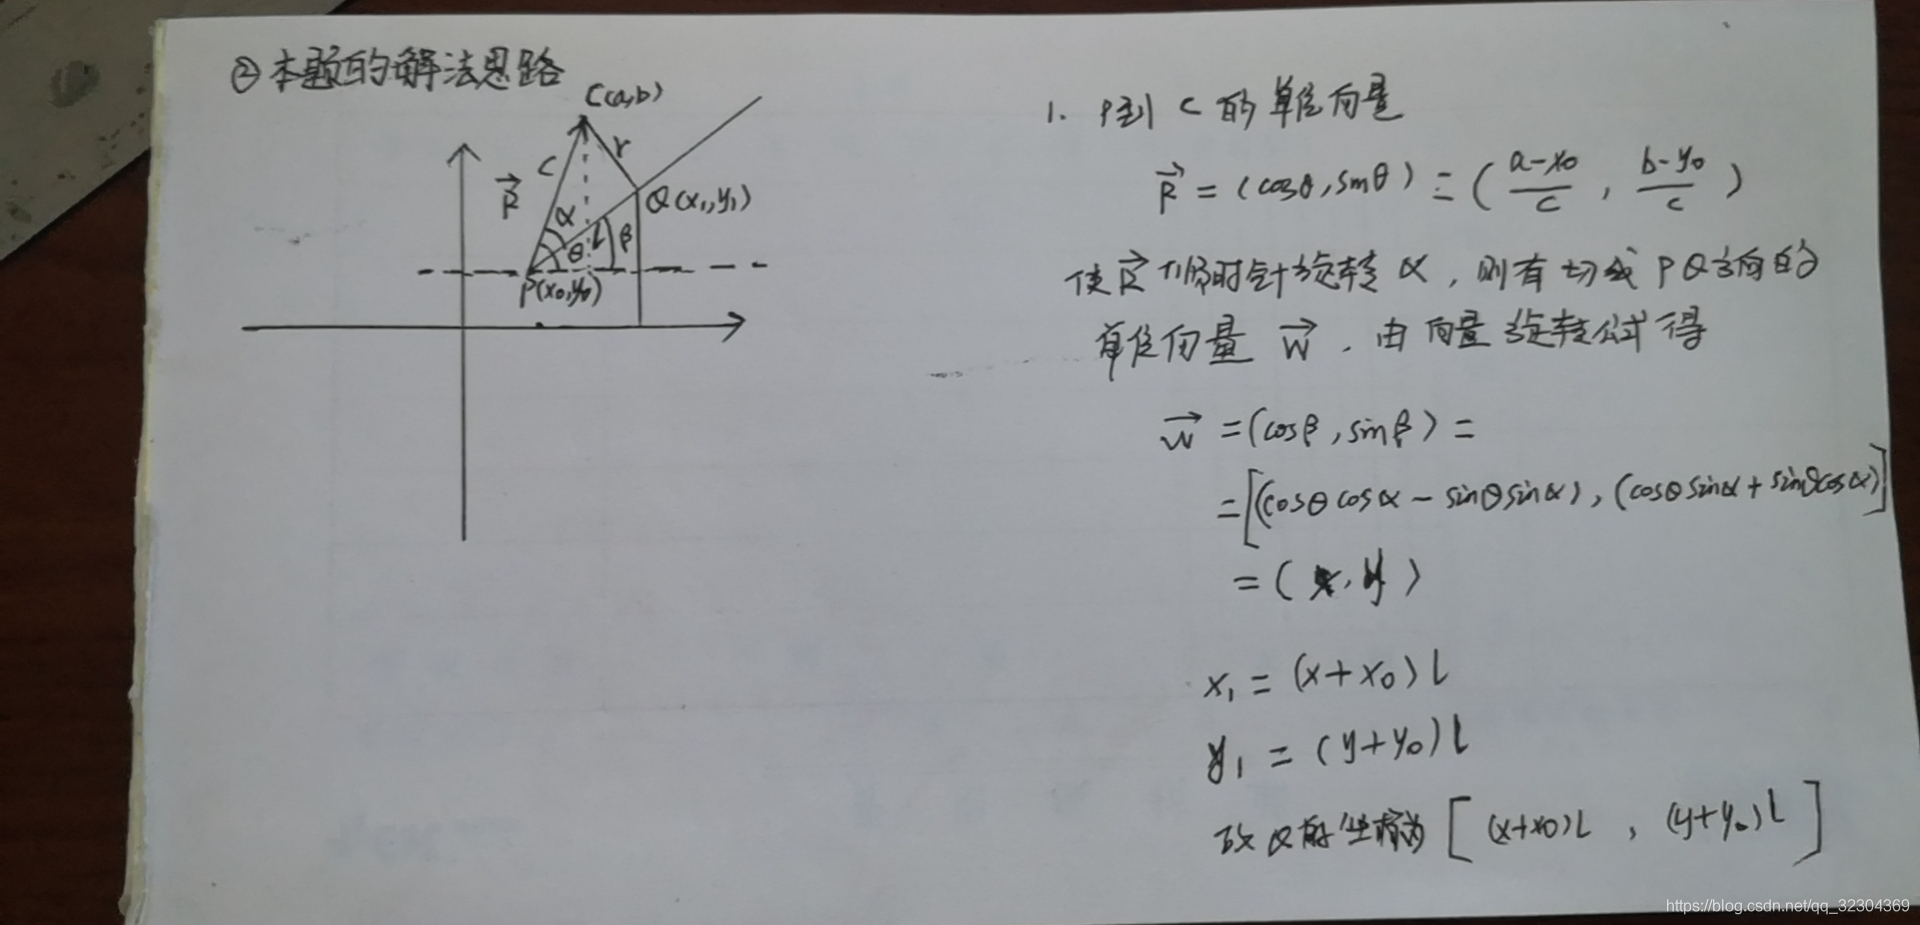 ②本题的解法思路
C(a,b)
r
C
R
α
Q(x₁,y₁)
θ
L
β
P(x₀,y₀)
1. P到 C 的单位向量
R = (cosθ, sinθ) = ( (a-x₀)/c , (b-y₀)/c )
使 R 顺时针旋转 α,则有切线 PQ方向的
单位向量 W . 由向量旋转公式得
W = (cosβ, sinβ) =
= [(cosθcosα - sinθsinα), (cosθsinα + sinθcosα)]
= ( x, y )
x₁ = (x+x₀) L
y₁ = (y+y₀) L
故Q的坐标为 [ (x+x₀)L , (y+y₀)L ]
https://blog.csdn.net/qq_32304369